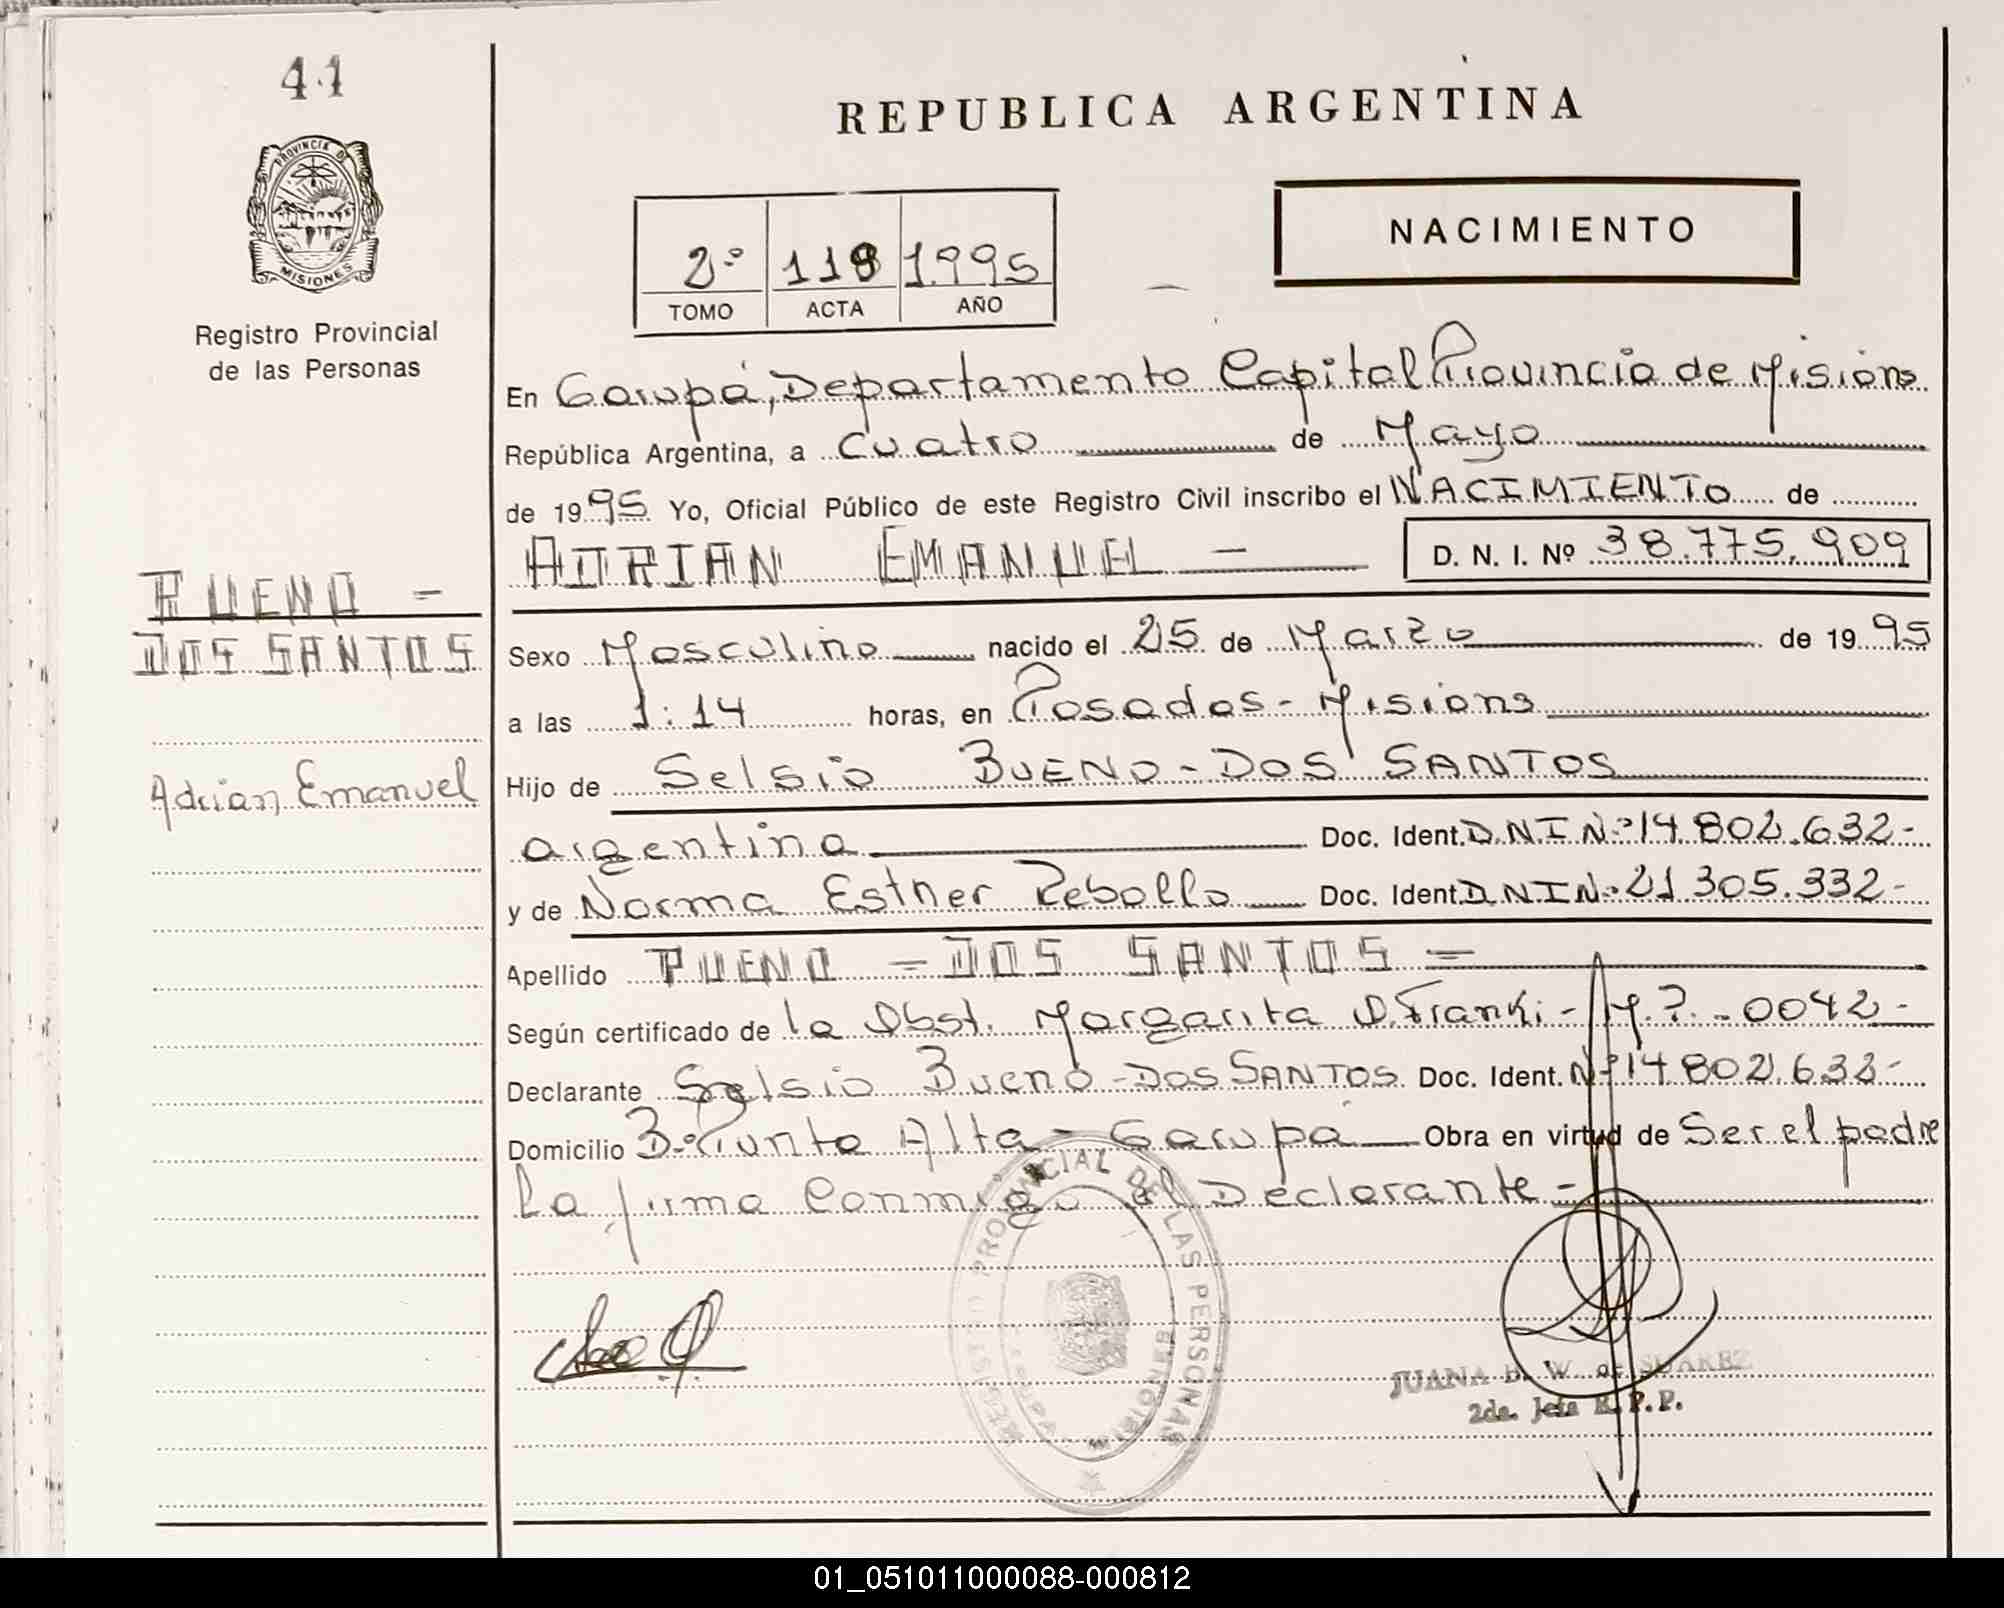 41
PROVINCIA DE
MISIONES
Registro Provincial
de las Personas
BUENO -
DOS SANTOS
Adrian Emanuel
REPUBLICA ARGENTINA
2º 118 1.995
TOMO ACTA AÑO
NACIMIENTO
En Garupá, Departamento Capital Provincia de Misions
República Argentina, a Cuatro de Mayo
de 1995 Yo, Oficial Público de este Registro Civil inscribo el NACIMIENTO de
ADRIAN EMANUEL - D. N. I. Nº 38.775.909
Sexo Masculino nacido el 25 de Marzo de 1995
a las 1:14 horas, en Posadas - Misions
Hijo de Selsio BUENO - DOS SANTOS
argentina Doc. Ident. D.N.I Nº 14.802.632-
y de Norma Esther Rebollo Doc. Ident. D.N.I Nº 21.305.332-
Apellido BUENO - DOS SANTOS =
Según certificado de la Obst. Margarita D. Franki - M.P. 0042-
Declarante Selsio Bueno - DOS SANTOS Doc. Ident. Nº 14.802.632-
Domicilio Bº Punta Alta - Garupá Obra en virtud de Ser el padre
La firma Conmigo el Declarante -
REGISTRO PROVINCIAL DE LAS PERSONAS
GARUPA MISIONES
JUANA B. W. de SUAREZ
2da. Jefa R.P.P.
01_051011000088-000812